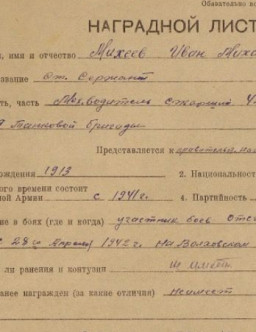 Обязательно к
НАГРАДНОЙ ЛИСТ
имя и отчество Михеев Иван
звание Ст. Сержант
сть, часть Мех. водитель
Танковой бригады
Представляется к
рождения 1913 2. Национальность
ого времени состоит
ной Армии с 1941 г. 4. Партийность
ие в боях (где и когда) участник боев
1942 г. На Волховском
ли ранения и контузии Не имеет
анее награжден (за какие отличия) Не имеет